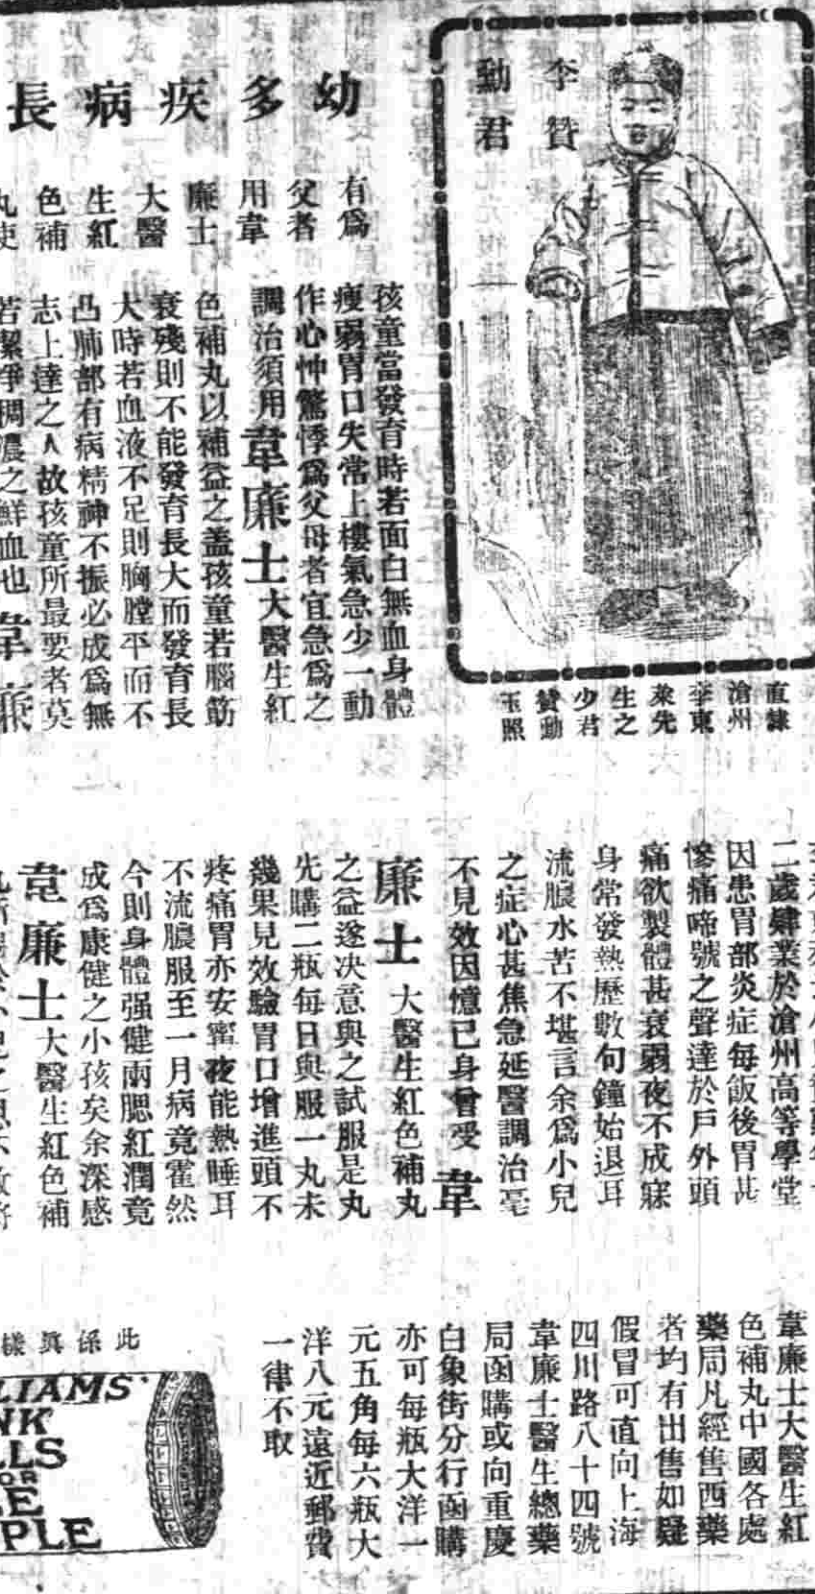 幼多疾病長
有爲
父者
用韋
廉士
大醫
生紅
色補
丸使
孩童當發育時若面白無血身體
瘦弱胃口失常上樓氣急少一動
作心忡驚悸爲父母者宜急爲之
調治須用韋廉士大醫生紅
色補丸以補益之蓋孩童若腦筋
衰殘則不能發育長大而發育長
大時若血液不足則胸膛平而不
凸肺部有病精神不振必成爲無
志上達之人故孩童所最要者莫
若潔淨稠濃之鮮血也韋廉
李贊
勳君
直隸
滄州
李東
萊先
生之
少君
贊勳
玉照
二歲肄業於滄州高等學堂
因患胃部炎症每飯後胃甚
慘痛啼號之聲達於戶外頭
痛欲製體甚衰弱夜不成寐
身常發熱歷數句鐘始退耳
流膿水苦不堪言余爲小兒
之症心甚焦急延醫調治毫
不見效因憶已身曾受韋
廉士大醫生紅色補丸
之益遂决意與之試服是丸
先購二瓶每日與服一丸未
幾果見效驗胃口增進頭不
疼痛胃亦安寗夜能熟睡耳
不流膿服至一月病竟霍然
今則身體强健兩腮紅潤竟
成爲康健之小孩矣余深感
韋廉士大醫生紅色補
韋廉士大醫生紅
色補丸中國各處
藥局凡經售西藥
者均有出售如疑
假冒可直向上海
四川路八十四號
韋廉士醫生總藥
局函購或向重慶
白象街分行函購
亦可每瓶大洋一
元五角每六瓶大
洋八元遠近郵費
一律不取
此係眞樣
LIAMS'
NK
LLS
OR
LE
PLE